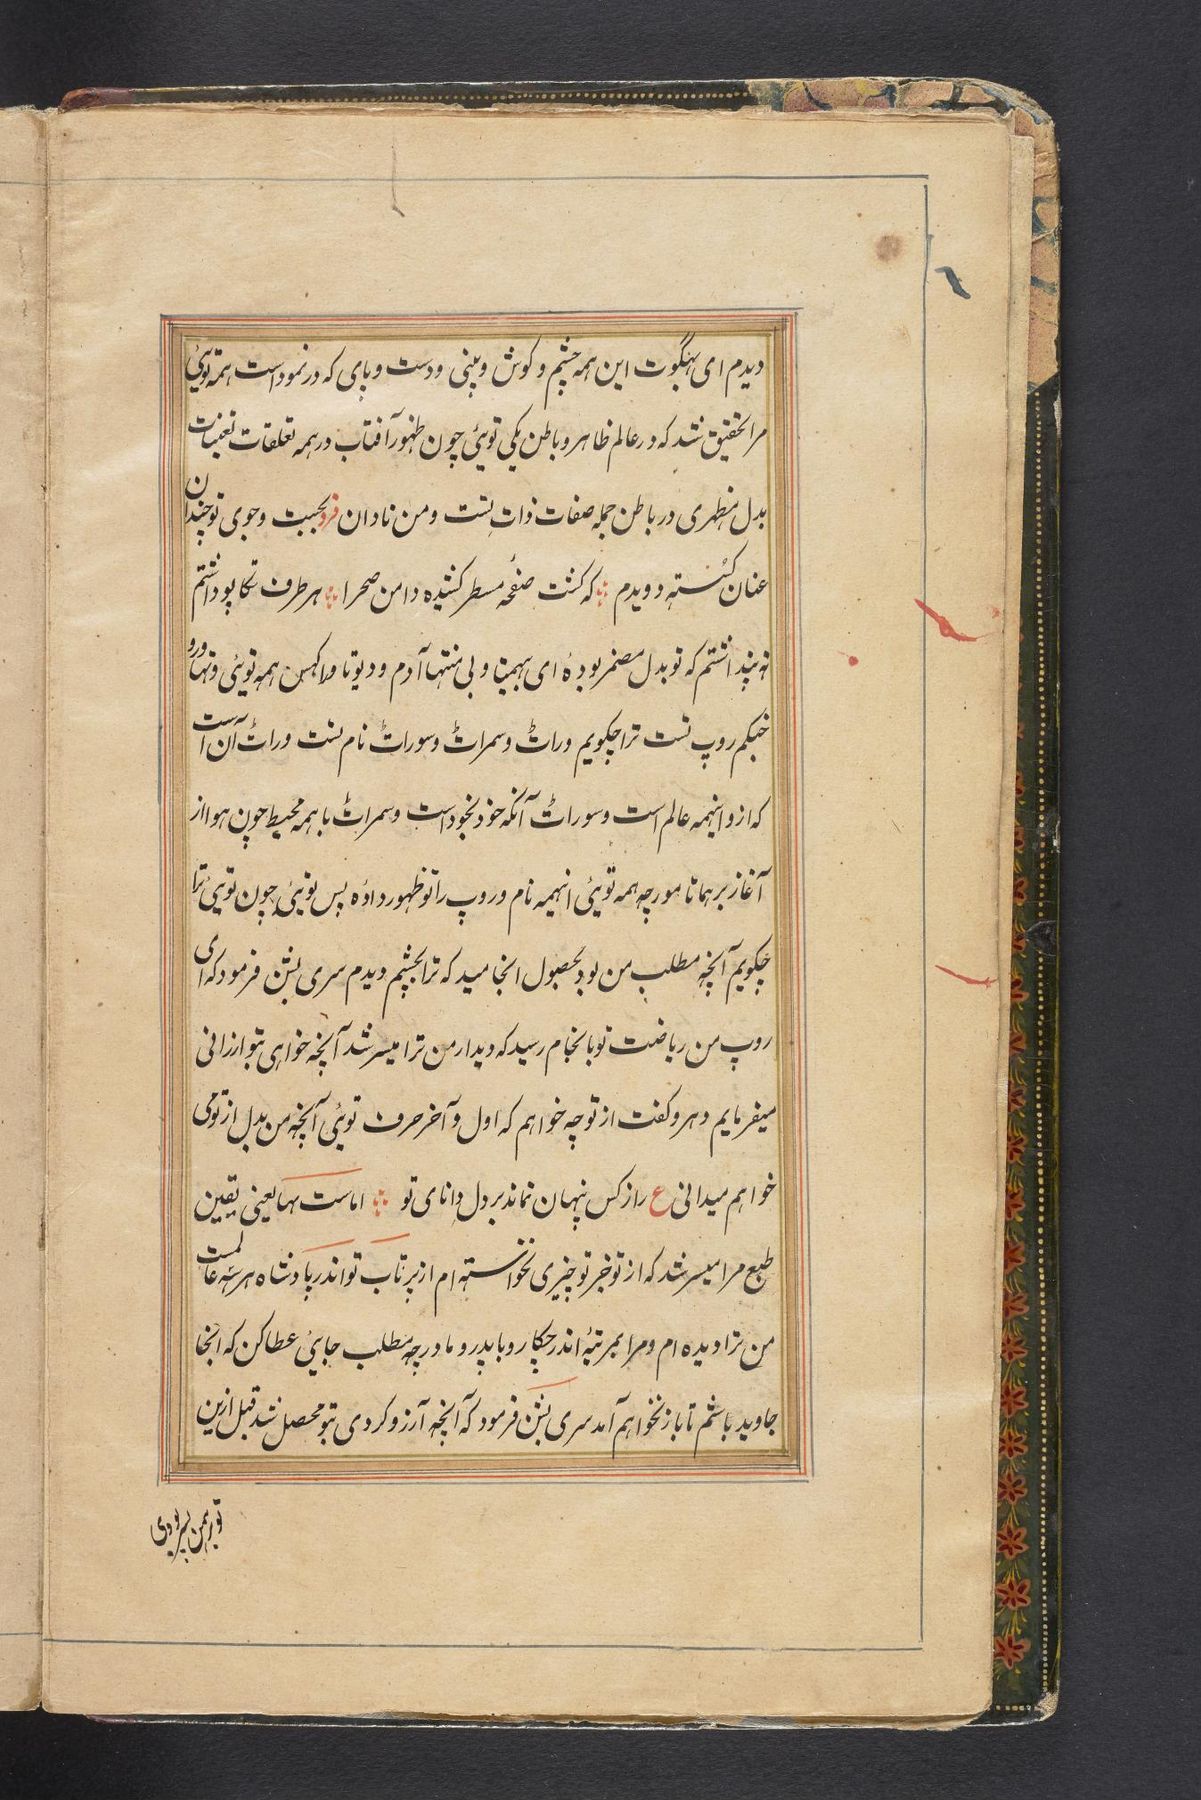 دیدم ای بهگوت این همه چشم و کوش و بینی و دست و پای که در نمود است همه توئی
مرا تحقیق شد که در عالم ظاهر و باطن یکی توئی چون ظهور آفتاب در همه تعلقات تعینات
بدل مظهری در باطن جمله صفات ذات تست و من نادان فرد بجست و جوی تو چندان
عنان کسسته دویدم که کشت صفحه مسطر کشیده دامن صحرا هر طرف تکاپو داشتم
نه پنداشتم که تو بدل مضمر بودهٔ ای بهمینا و بی منتها آدم و دیوتا و راکهس همه توئی و تهاورو
جنکم روپ تست ترا چکویم وراٹ و سمراٹ و سوراٹ نام تست وراٹ آن است
که ازو اینهمه عالم است و سوراٹ آنکه خود بخود است و سمراٹ با همه محیط چون هوا از
آغاز برهما تا مورچه همه توئی اینهمه نام و روپ را تو ظهور دادهٔ پس توئی چون توئی ترا
چکویم آنچه مطلب من بود بحصول انجامید که ترا بچشم دیدم سری بشن فرمود که ای
روپ من ریاضت تو بانجام رسید که دیدار من ترا میسر شد آنچه خواهی بتو ارزانی
میفرمایم دهرو کفت از تو چه خواهم که اول و آخر حرف توئی آنچه من بدل از تو می
خواهم میدانی ع راز کس پنهان نماند بر دل دانای تو اما ست سها یعنی یقین
طبع مرا میسر شد که از تو خبر تو چیزی نخواسته ام از پرتاب تو اندر پادشاه هر سه عالمست
من ترا دیده ام و مرا بمرتبهٔ اندر چکار و با پدر و مادر چه مطلب جایئ عطا کن که آنجا
جاوید باشم تا باز نخواهم آمد سری بشن فرمود که آنچه آرزو کردی بتو محصل شد قبل ازین
تو برهمن پسر بودی